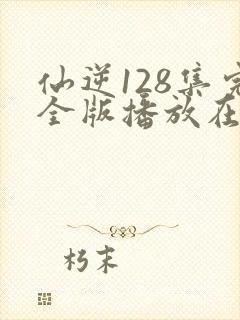 仙逆128集完
全版播放在
朽末